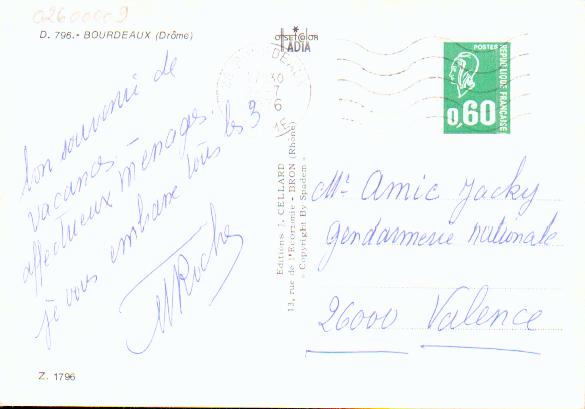 02600009
D. 796.- BOURDEAUX (Drôme)
Bon souvenir de
vacances -
affectueux ménages.
je vous embrasse tous les 3
MRoche
Z. 1796
OFFSET COLOR
IADIA
Editions J. CELLARD
13, rue de l'Economie - BRON (Rhône)
« Copyright By Spadem »
30
7
POSTES
REPUBLIQUE FRANÇAISE
0,60
Mr Amic Jacky
Gendarmerie Nationale
26000 Valence